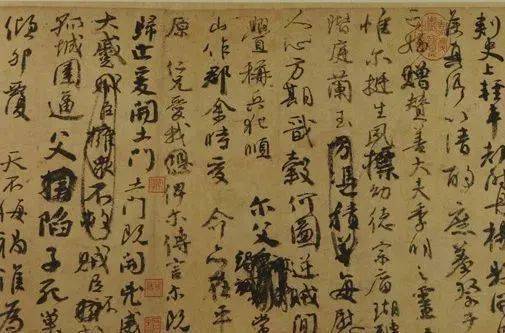 刺史上輕車都尉丹楊縣開國
侯真卿以清酌庶羞祭于
亡姪贈贊善大夫季明之靈
惟尔挺生夙標幼德宗廟瑚
階庭蘭玉方憑積善每慰
人心方期戩穀何圖逆賊閒
釁稱兵犯順 尔父竭誠常
山作郡余時受命亦在平
原仁兄愛我俾尔傳言尔既
歸止爰開土門土門既開凶威
大蹙賊臣擁衆不救賊臣
孤城圍逼父陷子死巢
傾卵覆 天不悔禍誰為